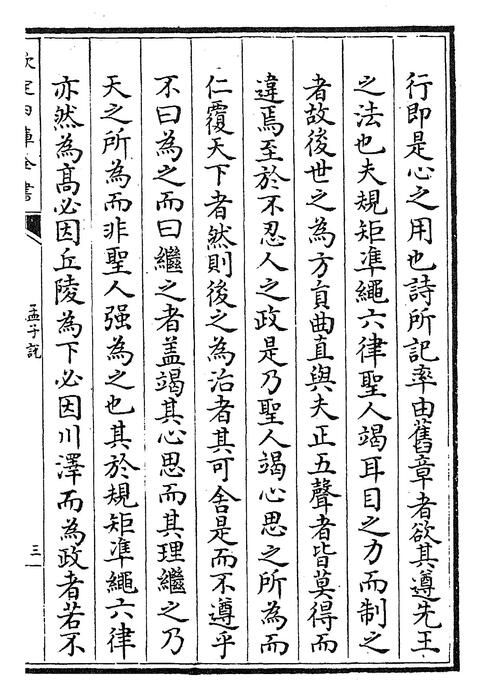 行即是心之用也詩所記率由舊章者欲其遵先王
之法也夫規矩準繩六律聖人竭耳目之力而制之
者故後世之為方員曲直與夫正五聲者皆莫得而
違焉至於不忍人之政是乃聖人竭心思之所為而
仁覆天下者然則後之為治者其可舍是而不遵乎
不曰為之而曰繼之者盖竭其心思而其理繼之乃
天之所為而非聖人强為之也其於規矩準繩六律
亦然為髙必因丘陵為下必因川澤而為政者若不
欽定四庫全書
孟子説
三